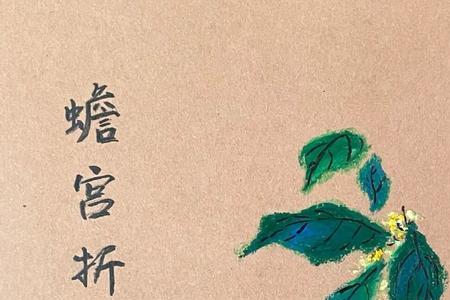 蟾宫折